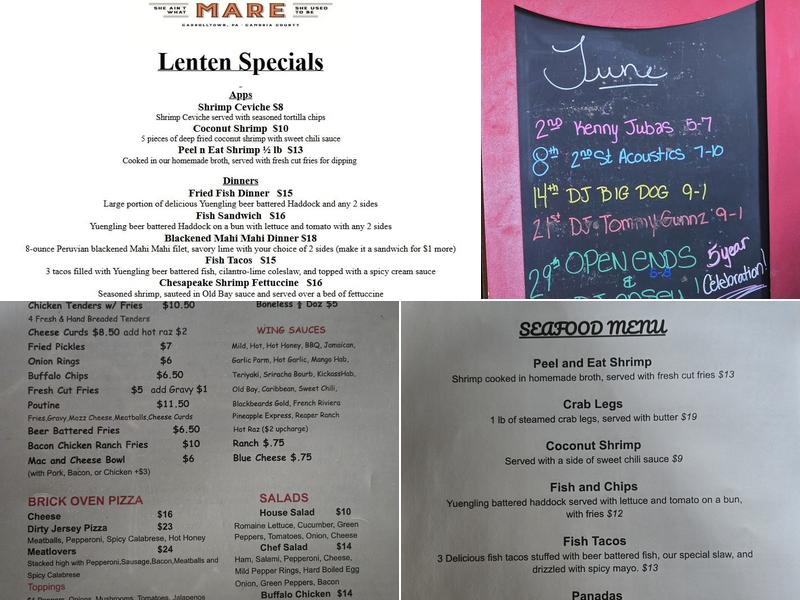 SHE AIN'T WHAT
MARE
SHE USED TO BE
CARROLLTOWN, PA · CAMBRIA COUNTY
Lenten Specials
Apps
Shrimp Ceviche $8
Shrimp Ceviche served with seasoned tortilla chips
Coconut Shrimp $10
5 pieces of deep fried coconut shrimp with sweet chili sauce
Peel n Eat Shrimp ½ lb $13
Cooked in our homemade broth, served with fresh cut fries for dipping
Dinners
Fried Fish Dinner $15
Large portion of delicious Yuengling beer battered Haddock and any 2 sides
Fish Sandwich $16
Yuengling beer battered Haddock on a bun with lettuce and tomato with any 2 sides
Blackened Mahi Mahi Dinner $18
8-ounce Peruvian blackened Mahi Mahi filet, savory lime with your choice of 2 sides (make it a sandwich for $1 more)
Fish Tacos $15
3 tacos filled with Yuengling beer battered fish, cilantro-lime coleslaw, and topped with a spicy cream sauce
Chesapeake Shrimp Fettuccine $16
Seasoned shrimp, sauteed in Old Bay sauce and served over a bed of fettuccine
June
2nd Kenny Jubas 5-7
8th 2nd St Acoustics 7-10
14th DJ BIG DOG 9-1
21st DJ Tommy Gunnz 9-1
29th OPEN ENDS
6-8
&
5 year
Celebration!
Chicken Tenders w/ Fries $10.50
4 Fresh & Hand Breaded Tenders
Cheese Curds $8.50 add hot raz $2
Fried Pickles $7
Onion Rings $6
Buffalo Chips $6.50
Fresh Cut Fries $5 add Gravy $1
Poutine $11.50
Fries,Gravy,Mozz Cheese,Meatballs,Cheese Curds
Beer Battered Fries $6.50
Bacon Chicken Ranch Fries $10
Mac and Cheese Bowl $6
(with Pork, Bacon, or Chicken +$3)
BRICK OVEN PIZZA
Cheese $16
Dirty Jersey Pizza $23
Meatballs, Pepperoni, Spicy Calabrese, Hot Honey
Meatlovers $24
Stacked high with Pepperoni,Sausage,Bacon,Meatballs and
Spicy Calabrese
Toppings
$1 Peppers, Onions, Mushrooms, Tomatoes, Jalapenos
Boneless ½ Doz $5
WING SAUCES
Mild, Hot, Hot Honey, BBQ, Jamaican,
Garlic Parm, Hot Garlic, Mango Hab,
Teriyaki, Sriracha Bourb, KickassHab,
Old Bay, Caribbean, Sweet Chili,
Blackbeards Gold, French Riviera
Pineapple Express, Reaper Ranch
Hot Raz ($2 upcharge)
Ranch $.75
Blue Cheese $.75
SALADS
House Salad $10
Romaine Lettuce, Cucumber, Green
Peppers, Tomatoes, Onion, Cheese
Chef Salad $14
Ham, Salami, Pepperoni, Cheese,
Mild Pepper Rings, Hard Boiled Egg
Onion, Green Peppers, Bacon
Buffalo Chicken $14
SEAFOOD MENU
Peel and Eat Shrimp
Shrimp cooked in homemade broth, served with fresh cut fries $13
Crab Legs
1 lb of steamed crab legs, served with butter $19
Coconut Shrimp
Served with a side of sweet chili sauce $9
Fish and Chips
Yuengling battered haddock served with lettuce and tomato on a bun,
with fries $12
Fish Tacos
3 Delicious fish tacos stuffed with beer battered fish, our special slaw, and
drizzled with spicy mayo. $13
Panadas